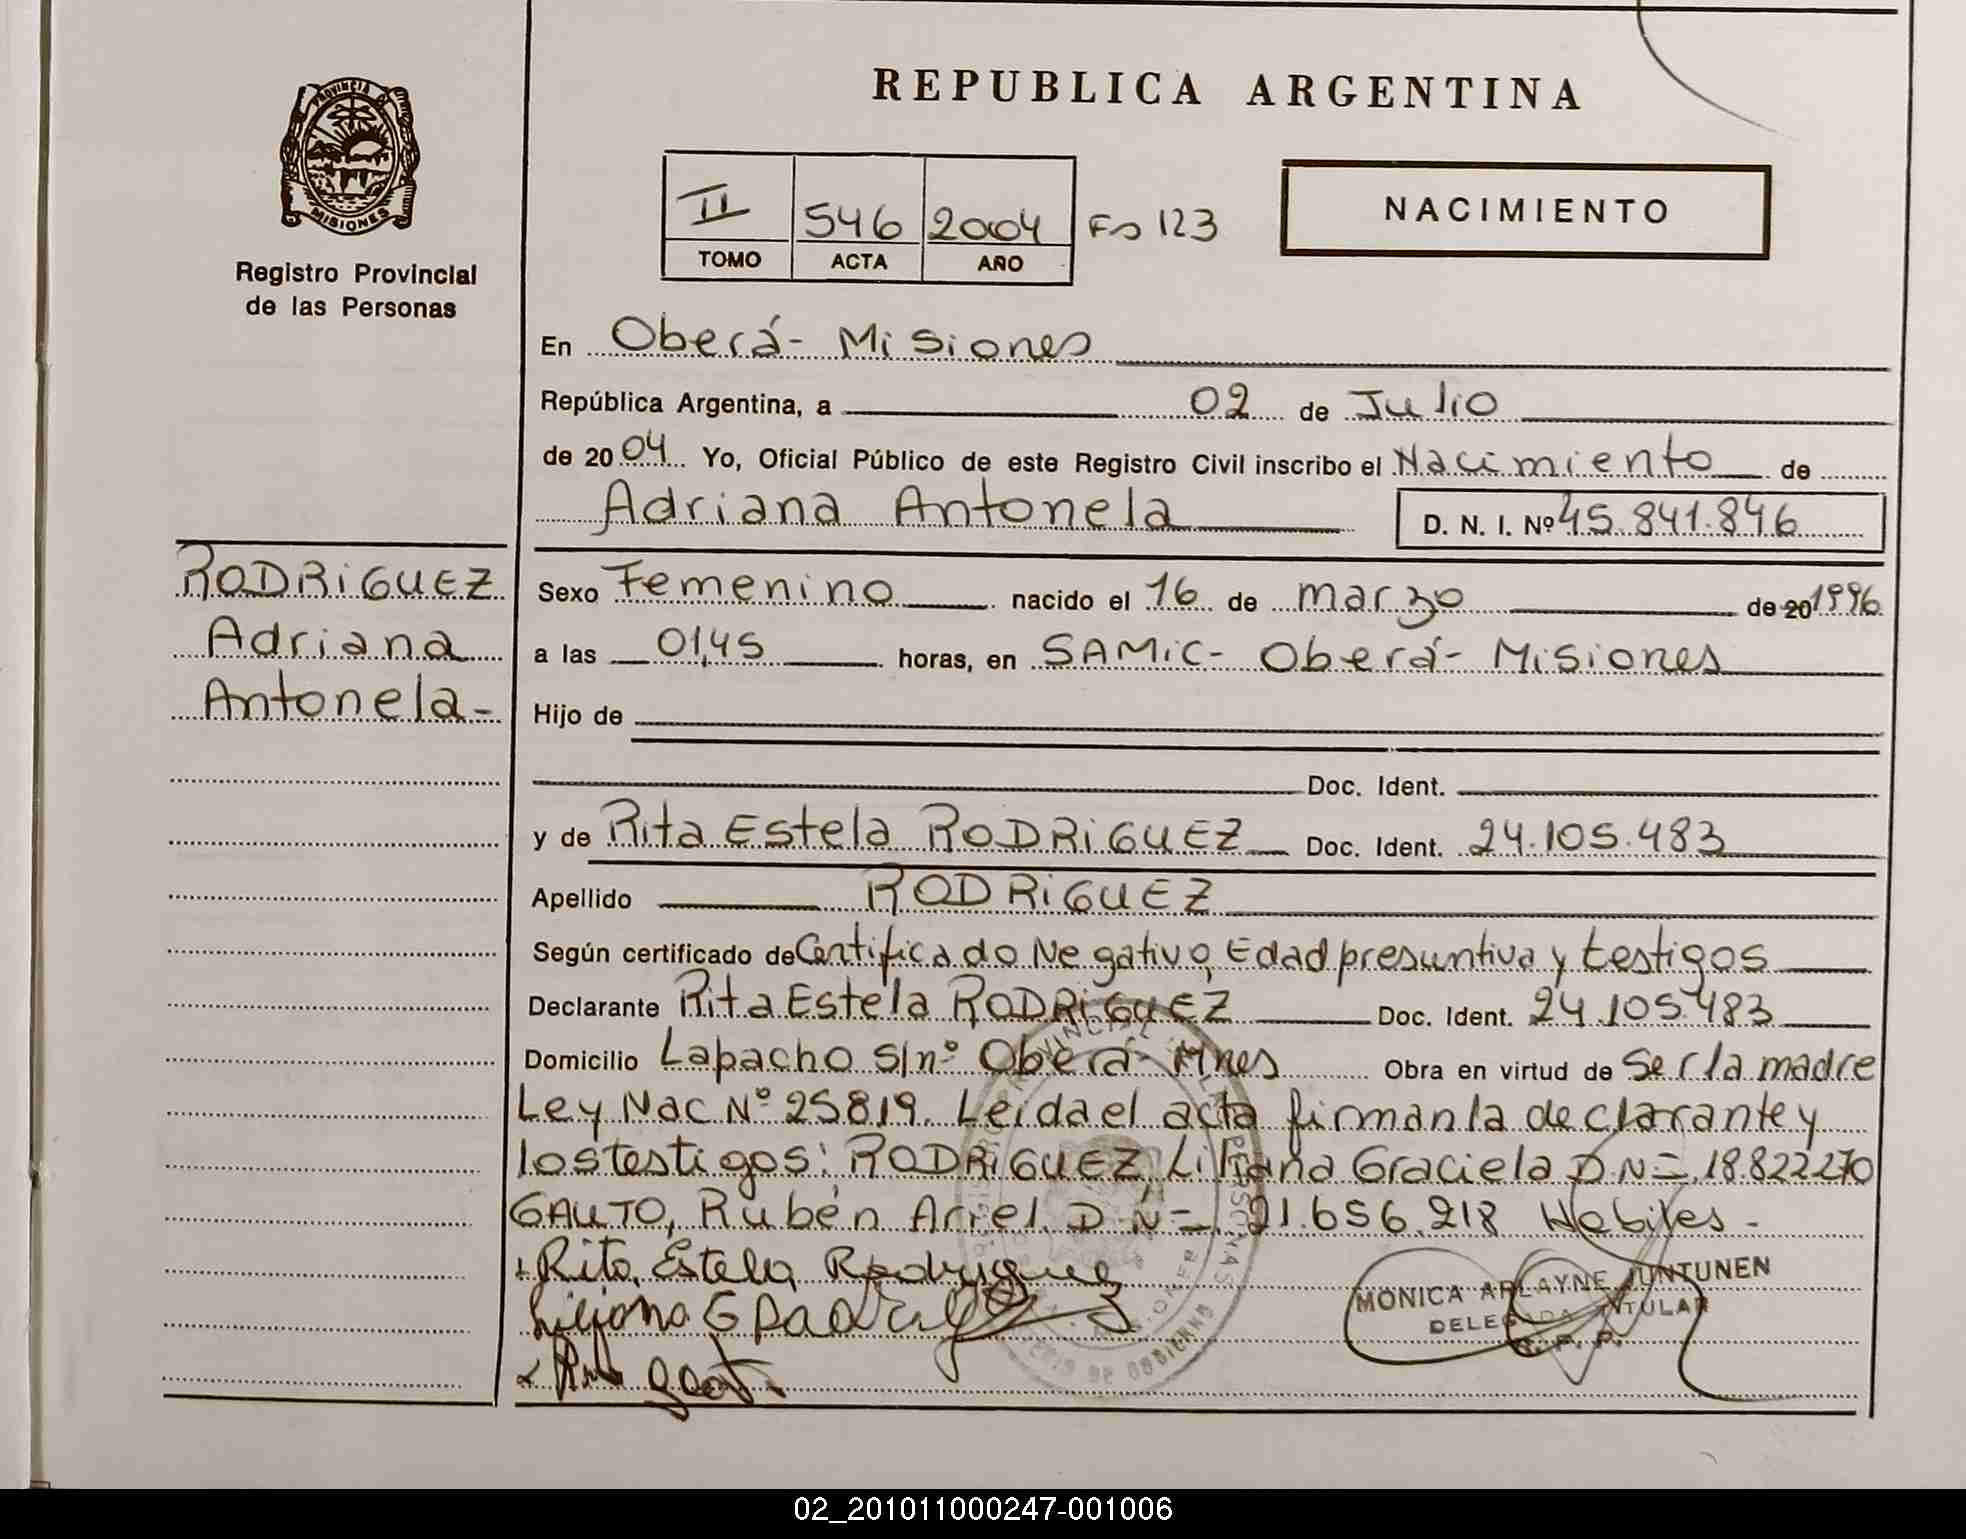 REPUBLICA ARGENTINA
PROVINCIA DE
MISIONES
Registro Provincial
de las Personas
II 546 2004 Fs 123
TOMO ACTA AÑO
NACIMIENTO
En Oberá - Misiones
República Argentina, a 02 de Julio
de 2004 Yo, Oficial Público de este Registro Civil inscribo el Nacimiento de
Adriana Antonela D. N. I. Nº 45.841.846
RODRiGUEZ
Adriana
Antonela -
Sexo Femenino nacido el 16 de marzo de 20 1996
a las 01,45 horas, en SAMiC - Oberá - Misiones
Hijo de
Doc. Ident.
y de Rita Estela RODRiGUEZ Doc. Ident. 24.105.483
Apellido RODRiGUEZ
Según certificado de Certificado Negativo, Edad presuntiva y testigos
Declarante Rita Estela RODRiGUEZ Doc. Ident. 24.105.483
Domicilio Lapacho s/nº Oberá - Mnes Obra en virtud de Ser la madre
Ley Nac Nº 25819. Leida el acta firman la declarante y
los testigos: RODRiGUEZ, Liliana Graciela D N= 18.822270
GAUTO, Rubén Ariel D N= 21.656.218 Habiles -
Rita Estela Rodriguez
MONICA ARLAYNE JUNTUNEN
DELEGADA TITULAR
R. P. P.
02_201011000247-001006